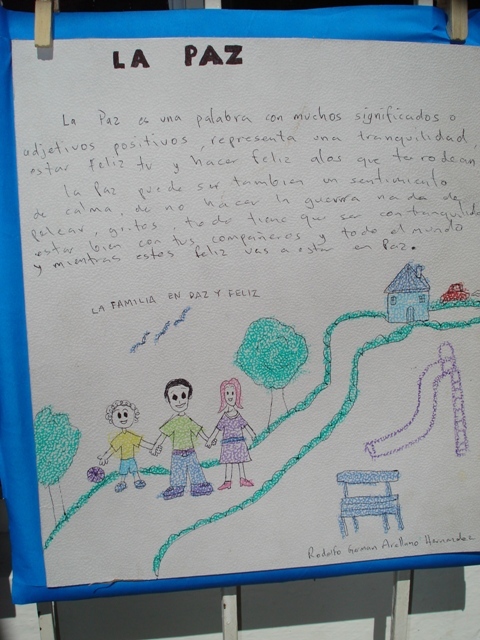 LA PAZ
La Paz es una palabra con muchos significados o
adjetivos positivos, representa una tranquilidad,
estar feliz tu y hacer feliz alos que te rodean
la Paz puede ser tambien un sentimiento
de calma, de no hacer la guerra nada de
pelear, gritos, todo tiene que ser con tranquilidad
estar bien con tus compañeros y todo el mundo
y mientras estes feliz vas a estar en Paz.
LA FAMILIA EN PAZ Y FELIZ
Rodolfo German Arellano Hernandez